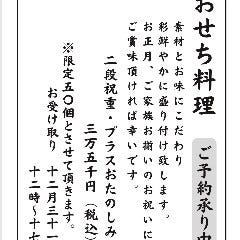 おせち料理
ご予約承り中
素材とお味にこだわり
彩鮮やかに盛り付け致します。
お正月、ご家族お揃いのお祝いに
ご賞味頂ければ幸いです。
二段祝重・プラスおたのしみ
三万五千円(税込)
※限定五〇個とさせて頂きます。
お受け取り 十二月三十一
十二時~十七